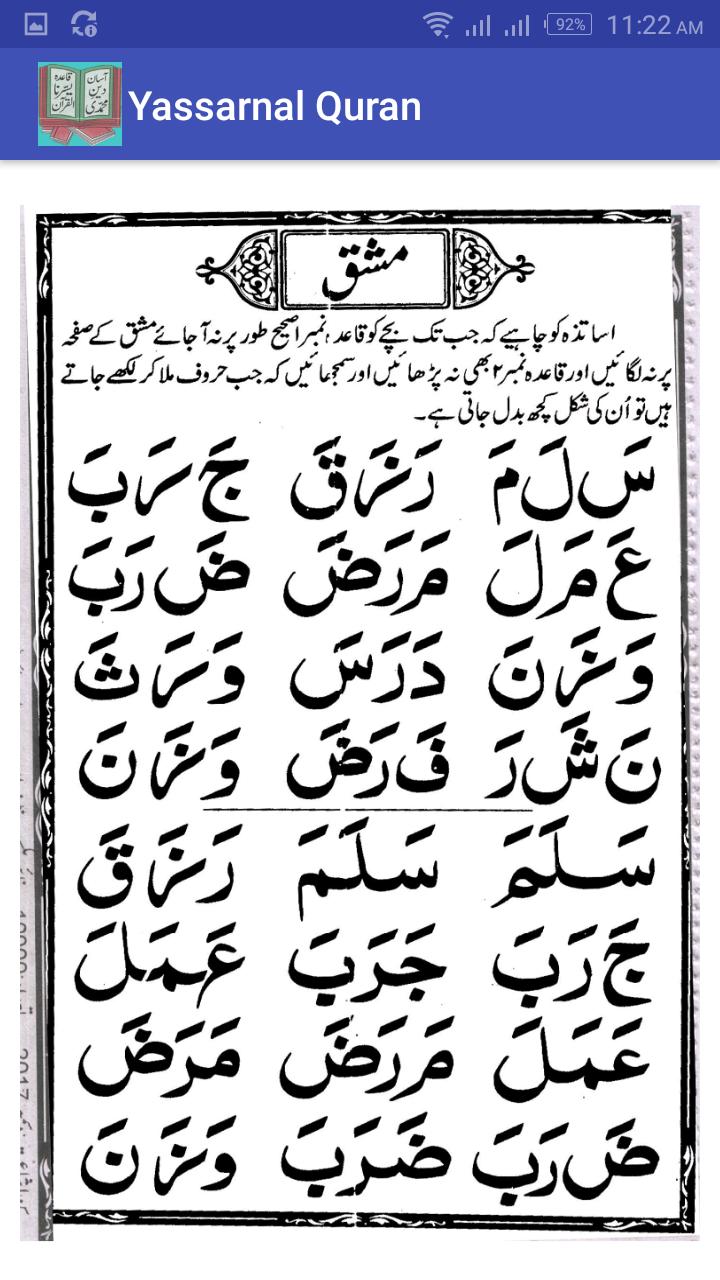 92% 11:22 AM
قاعدہ یسرنا القرآن
آسان دین محمدی
Yassarnal Quran
مشق
اساتذہ کو چاہیے کہ جب تک بچے کو قاعدہ نمبر ا صحیح طور پر نہ آ جائے مشق کے صفحہ
پر نہ لگائیں اور قاعدہ نمبر ۲ بھی نہ پڑھائیں اور سمجھائیں کہ جب حروف ملا کر لکھے جاتے
ہیں تو اُن کی شکل کچھ بدل جاتی ہے۔
سَ لَ مَ رَ زَ قَ جَ رَ بَ
عَ مَ لَ مَ رَ ضَ ضَ رَ بَ
وَ زَ نَ دَ رَ سَ وَ رَ ثَ
نَ شَ رَ فَ رَ ضَ وَ زَ نَ
سَلَمَ سَلَمَ رَ زَ قَ
جَ رَ بَ جَرَبَ عَمَلَ
عَمَلَ مَ رَ ضَ مَرَضَ
ضَ رَ بَ ضَرَبَ وَ زَ نَ